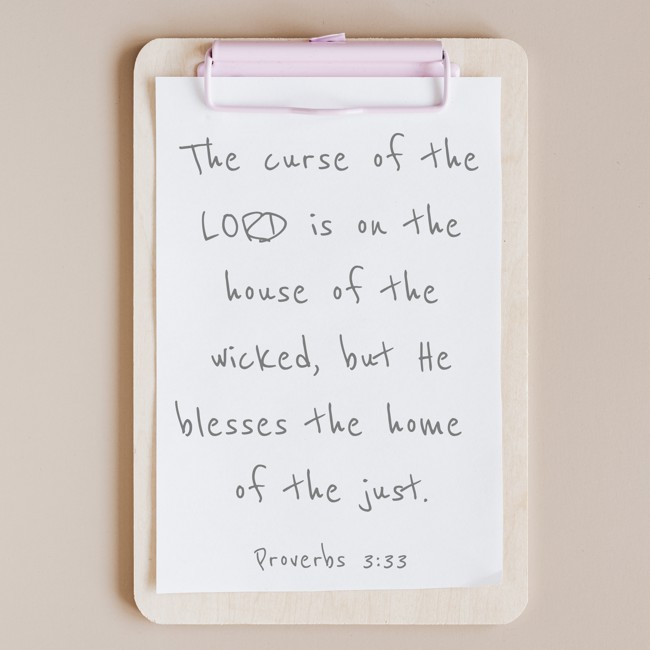 The curse of the
LORD is on the
house of the
wicked, but He
blesses the home
of the just.
Proverbs 3:33